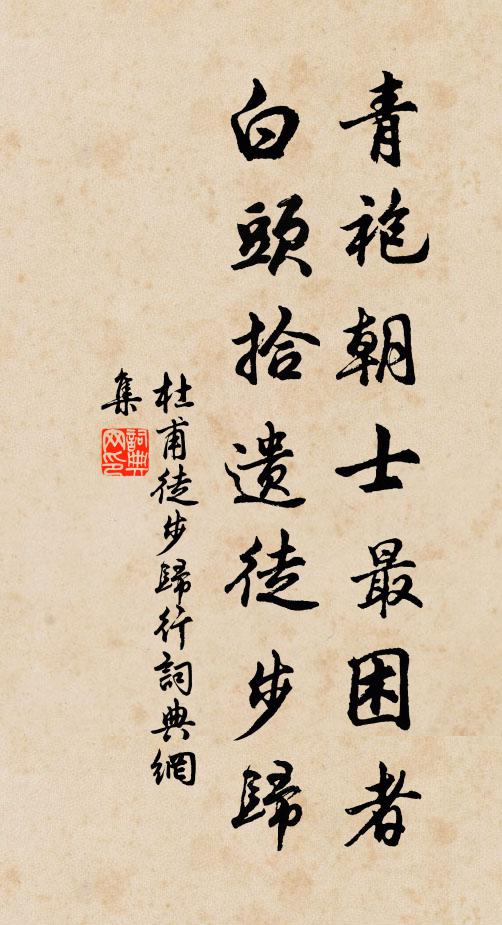 青袍朝士最困者
白頭拾遗徒步歸
杜甫徒步歸行詞典網
集
詞典
网印